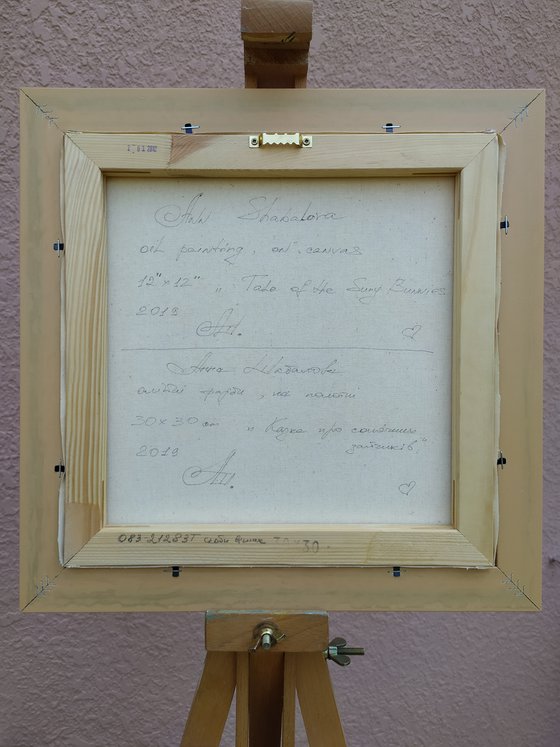 Ann Shabalova
oil painting, on canvas
12" x 12" „ Tale of the Suny Bunnies
2019
Ан.
Анна Шабалова
олійні фарби, на полотні
30 x 30 cm „ Казка про сонячних
зайчиків"
2019
Ан.
083-21283Т 30